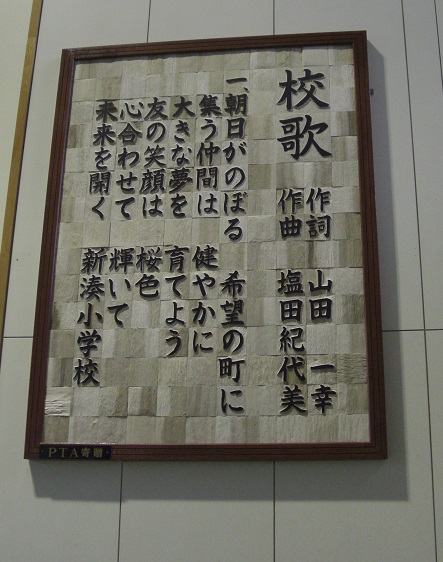 校歌
作詞 山田 一幸
作曲 塩田紀代美
一、朝日がのぼる 希望の町に
集う仲間は 健やかに
大きな夢を 育てよう
友の笑顔は 桜色
心合わせて 輝いて
未来を開く 新湊小学校
PTA寄贈